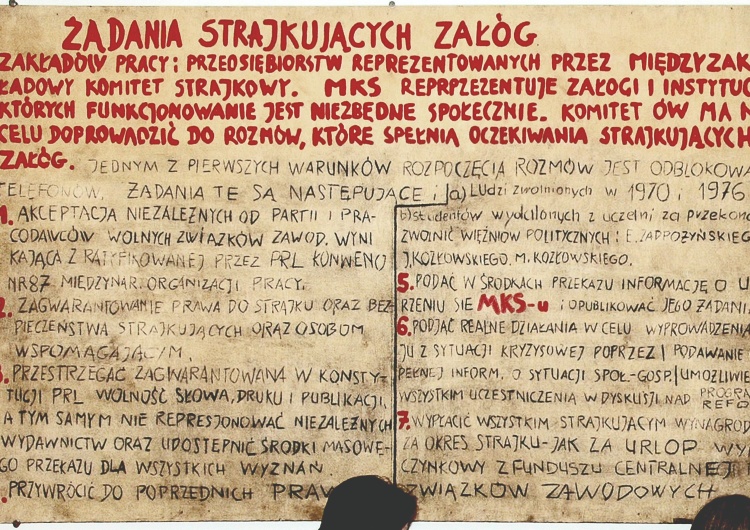 ŻĄDANIA STRAJKUJĄCYCH ZAŁÓG
ZAKŁADÓW PRACY i PRZEDSIĘBIORSTW REPREZENTOWANYCH PRZEZ MIĘDZYZAK
ŁADOWY KOMITET STRAJKOWY. MKS REPRPZENTUJE ZAŁOGI I INSTYTUC
KTÓRYCH FUNKCJONOWANIE JEST NIEZBĘDNE SPOŁECZNIE. KOMITET ÓW MA
CELU DOPROWADZIĆ DO ROZMÓW, KTÓRE SPEŁNIĄ OCZEKIWANIA STRAJKUJĄCYCH
ZAŁÓG. JEDNYM Z PIERWSZYCH WARUNKÓW ROZPOCZĘCIA ROZMÓW JEST ODBLOKOWA
TELEFONÓW. ŻĄDANIA TE SĄ NASTĘPUJĄCE:
1. AKCEPTACJA NIEZALEŻNYCH OD PARTII I PRA-
CODAWCÓW WOLNYCH ZWIĄZKÓW ZAWOD. WYNI
KAJĄCA Z RATYFIKOWANEJ PRZEZ PRL KONWENCJ
NR87 MIĘDZYNAR. ORGANIZACJI PRACY.
2. ZAGWARANTOWANIE PRAWA DO STRAJKU ORAZ BEZ-
PIECZEŃSTWA STRAJKUJĄCYCH ORAZ OSOBOM
WSPOMAGAJĄCYM.
3. PRZESTRZEGAĆ ZAGWARANTOWANĄ W KONSTY-
TUCJI PRL WOLNOŚĆ SŁOWA, DRUKU I PUBLIKACJI,
A TYM SAMYM NIE REPRESJONOWAĆ NIEZALEŻNYCH
WYDAWNICTW ORAZ UDOSTĘPNIĆ ŚRODKI MASOWE-
GO PRZEKAZU DLA WSZYSTKICH WYZNAŃ.
. PRZYWRÓCIĆ DO POPRZEDNICH PRAW
a) Ludzi zwolnionych w 1970 i 1976
b) studentów wydalonych z uczelni za przekona
ZWOLNIĆ WIĘŹNIÓW POLITYCZNYCH i E. ZADROŻYŃSKIEG
J. KOZŁOWSKIEGO, M. KOZŁOWSKIEGO.
5. PODAĆ W ŚRODKACH PRZEKAZU INFORMACJĘ O U
RZENIU SIĘ MKS-u i OPUBLIKOWAĆ JEGO ŻĄDANI
6. PODJĄĆ REALNE DZIAŁANIA W CELU WYPROWADZENIA
JU Z SYTUACJI KRYZYSOWEJ POPRZEZ | PODAWANIE
PEŁNEJ INFORM. O SYTUACJI SPOŁ-GOSP. | UMOŻLIWIE
WSZYSTKIM UCZESTNICZENIA W DYSKUSJI NAD PROGRA
REFO
7. WYPŁACIĆ WSZYSTKIM STRAJKUJĄCYM WYNAGROD
ZA OKRES STRAJKU-JAK ZA URLOP WY
CZYNKOWY Z FUNDUSZU CENTRALNEJ
ZWIĄZKÓW ZAWODOWYCH.